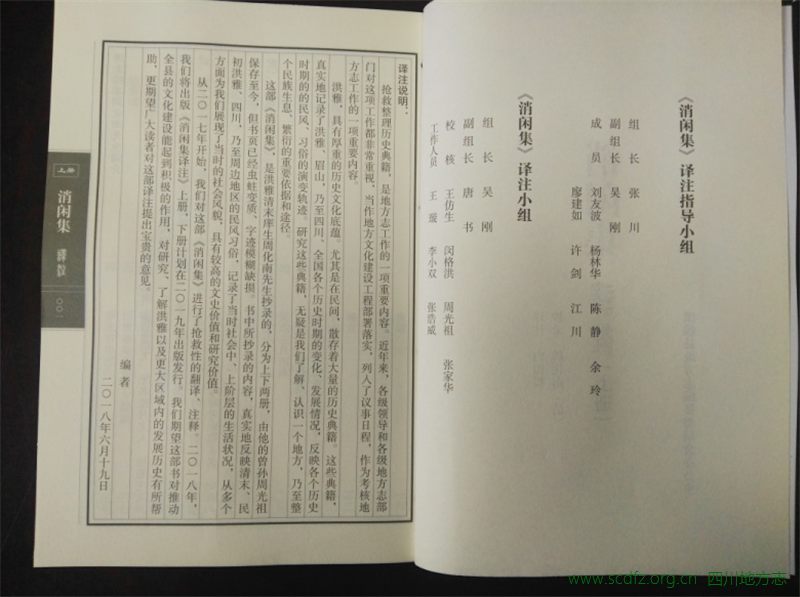 《消闲集》译注指导小组
组 长 张 川
副组长 吴 刚
成 员 刘友波 杨林华 陈 静 余 玲
廖建如 许 剑 江 川
《消闲集》译注小组
组 长 吴 刚
副组长 唐 书
校 核 王仿生 闵格洪 周光祖 张家华
工作人员 王 璇 李小双 张浩威
译注说明:
抢救整理历史典籍,是地方志工作的一项重要内容。近年来,各级领导和各级地方志部
门对这项工作都非常重视,当作地方文化建设工程部署落实,列入了议事日程,作为考核地
方志工作的一项重要内容。
洪雅,具有厚重的历史文化底蕴。尤其是在民间,散存着大量的历史典籍。这些典籍,
真实地记录了洪雅、眉山,乃至四川、全国各个历史时期的变化、发展情况,反映各个历史
时期的的民风、习俗的演变轨迹。研究这些典籍,无疑是我们了解、认识一个地方,乃至整
个民族生息、繁衍的重要依据和途径。
这部《消闲集》,是洪雅清末庠生周化南先生抄录的,分为上下两册,由他的曾孙周光祖
保存至今,但书页已经虫蛀变质、字迹模糊缺损。书中所抄录的内容,真实地反映清末、民
初洪雅、四川,乃至周边地区的民风习俗,记录了当时社会中、上阶层的生活状况,从多个
方面为我们展现了当时的社会风貌,具有较高的文史价值和研究价值。
从二〇一七年开始,我们对这部《消闲集》进行了抢救性的翻译、注释。二〇一八年,
我们将出版《消闲集译注》上册,下册计划在二〇一九年出版发行。我们期望这部书对推动
全县的文化建设能起到积极的作用,对研究、了解洪雅以及更大区域内的发展历史有所帮
助,更期望广大读者对这部译注提出宝贵的意见。
编者
二〇一八年六月十九日
上册
消闲集
译注
〇〇一
www.scdfz.org.cn 四川地方志